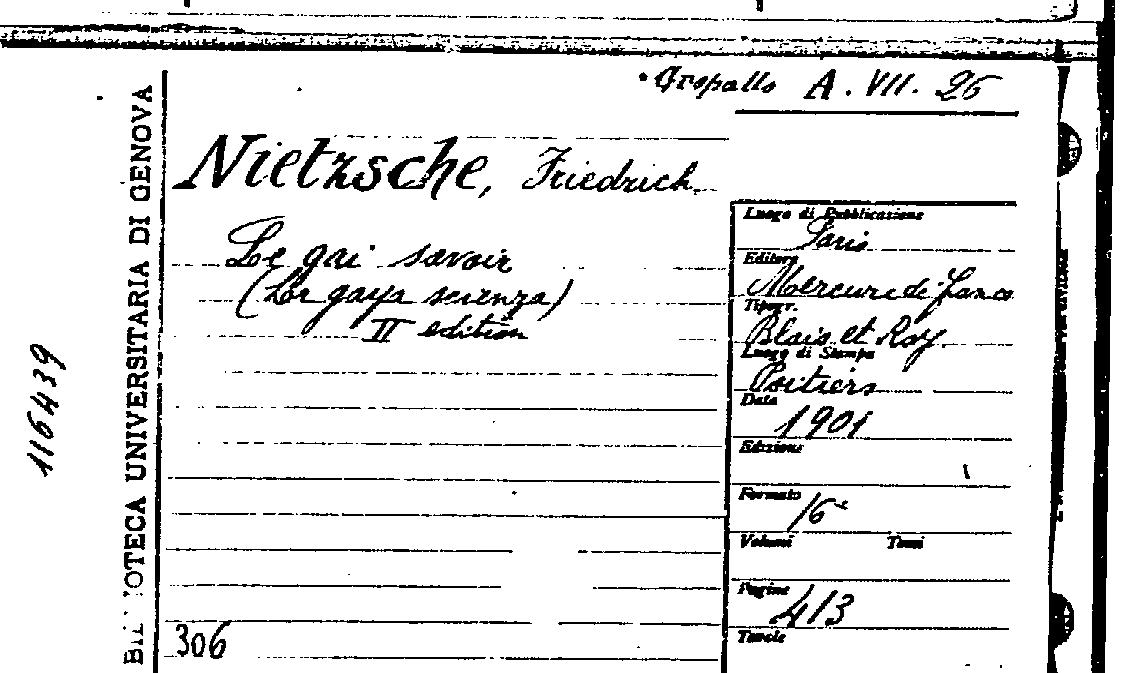 Gropallo A. VII. 26
Nietzsche, Friedrich
Le gai savoir
(La gaya scienza)
II edition
Luogo di Pubblicazione
Paris
Editore
Mercure de France
Tipogr.
Blais et Roy
Luogo di Stampa
Poitiers
Data
1901
Edizione
Formato
16°
Volumi Tomi
Pagine
413
Tavole
306
BIBLIOTECA UNIVERSITARIA DI GENOVA
116439